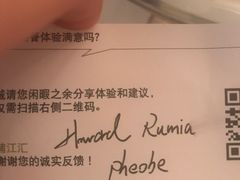 体验满意吗?
诚请您闲暇之余分享体验和建议,
仅需扫描右侧二维码。
Howard Rumia
浦江汇
谢谢您的诚实反馈!
Pheobe